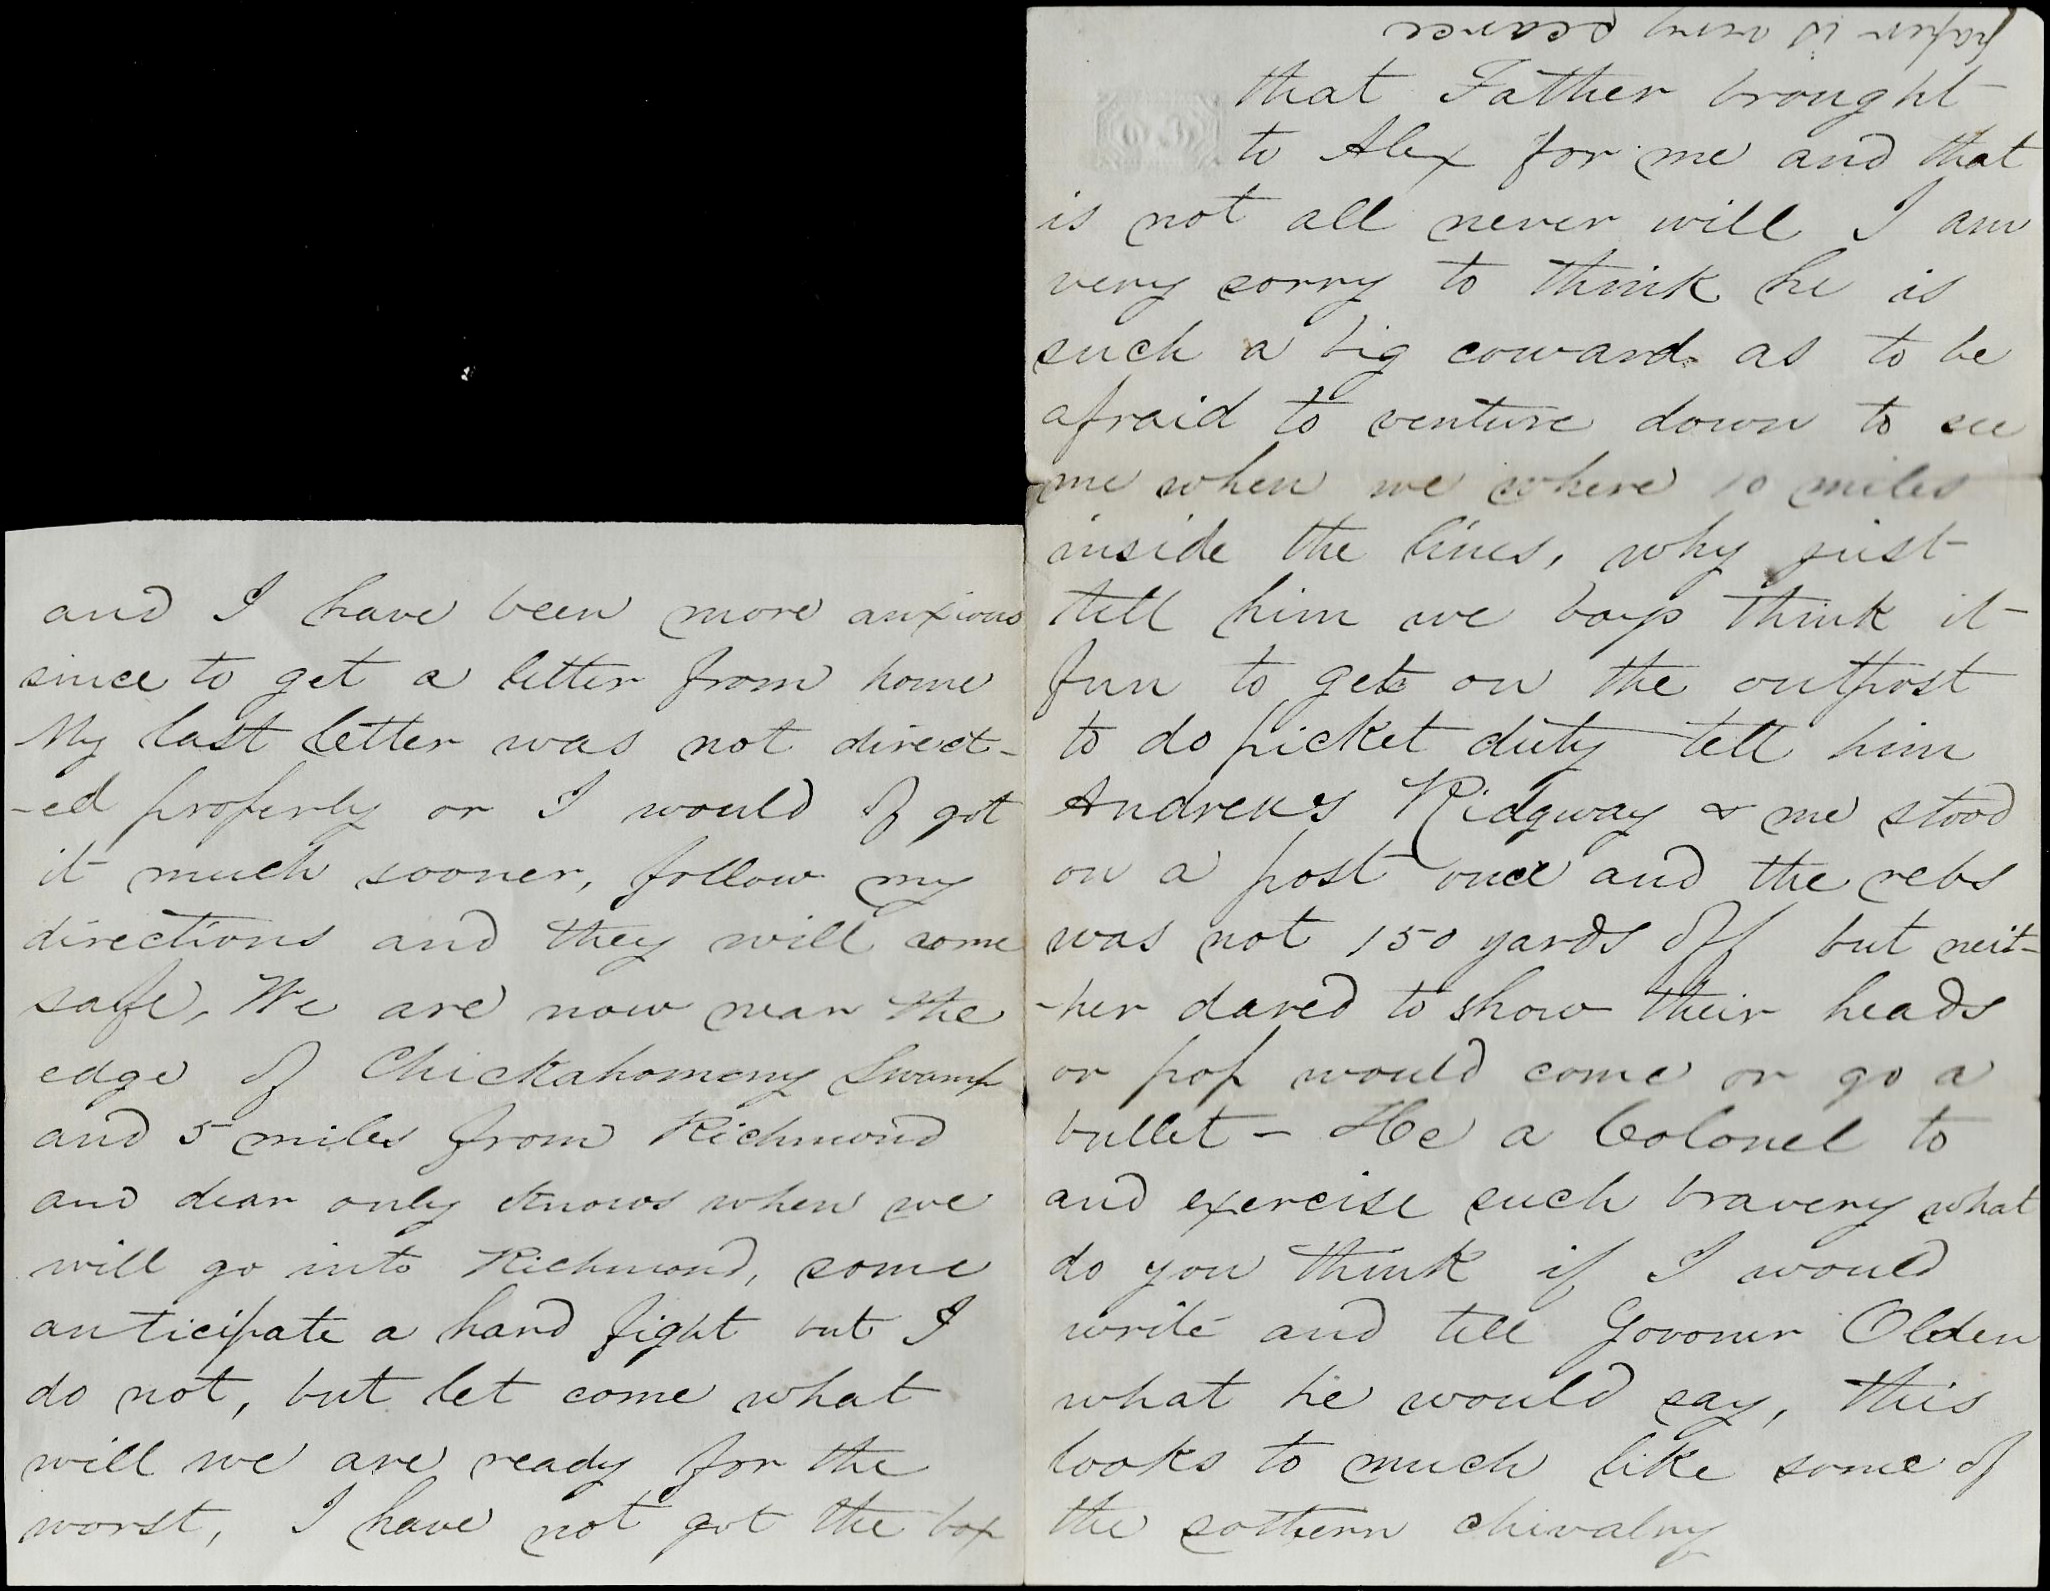 and I have been more anxious
since to get a letter from home
My last letter was not direct-
-ed properly or I would of got
it much sooner, follow my
directions and they will come
safe, We are now near the
edge of Chickahomeny Swamp
and 5 miles from Richmond
and dear only knows when we
will go into Richmond, some
anticipate a hard fight but I
do not, but let come what
will we are ready for the
worst, I have not got the box
paper is very scarce
that Father brought
to Alex for me and that
is not all never will I am
very sorry to think he is
such a big coward as to be
afraid to venture down to see
me when we where 10 miles
inside the lines, why just
tell him we boys think it
fun to get on the outpost
to do picket duty tell him
Andrews Ridgway & me stood
on a post once and the rebs
was not 150 yards off but neit-
-her dared to show their heads
or pop would come or go a
bullet - He a Colonel to
and exercise such bravery what
do you think if I would
write and tell Govoner Olden
what he would say, this
looks to much like some of
the sothern chivalry